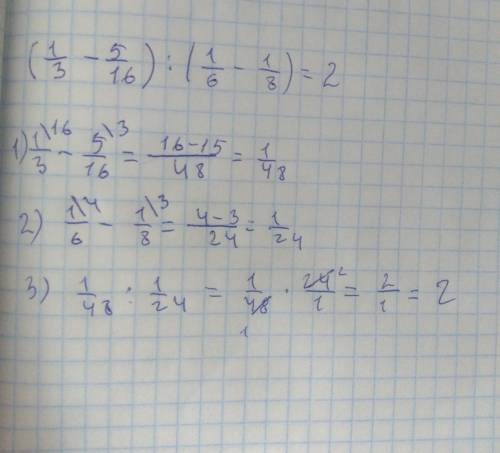 (1/3 - 5/16) : (1/6 - 1/8) = 2
1) 1\16/3 - 5\3/16 = 16-15/48 = 1/48
2) 1\4/6 - 1\3/8 = 4-3/24 = 1/24
3) 1/48 : 1/24 = 1/48 1 · 24 2/1 = 2/1 = 2